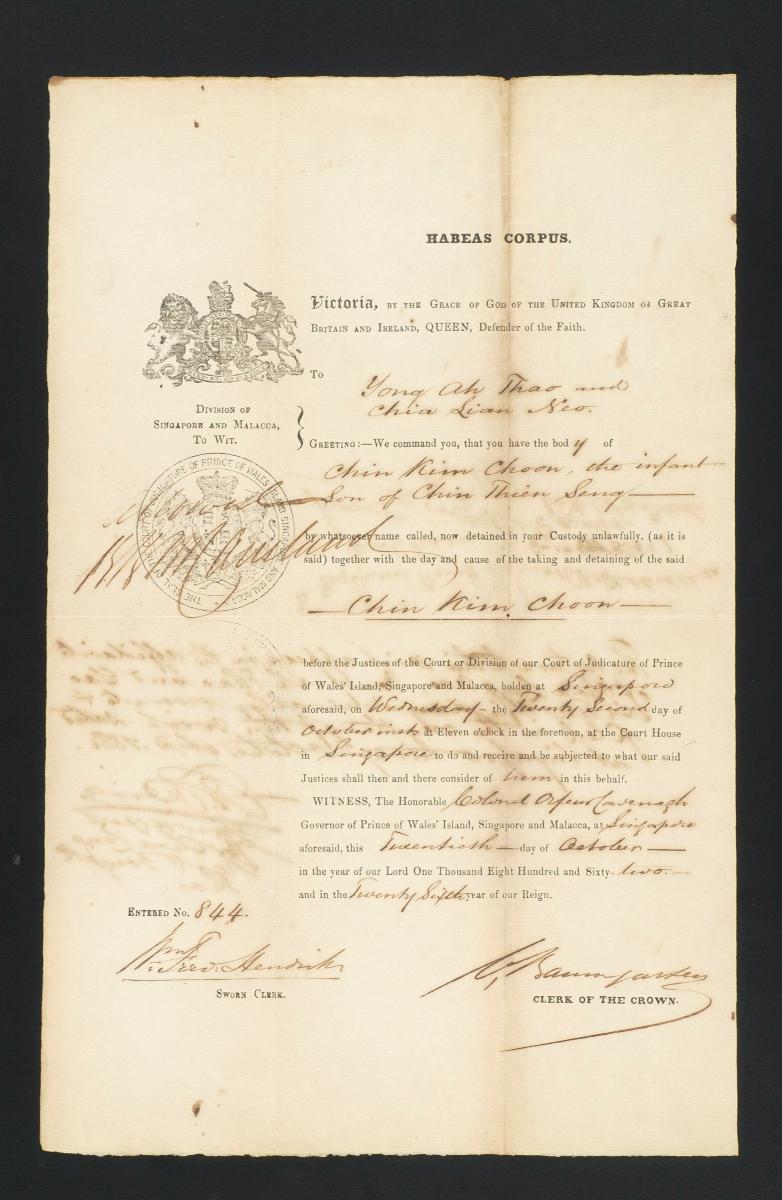 HABEAS CORPUS.
Victoria, BY THE GRACE OF GOD OF THE UNITED KINGDOM OF GREAT
BRITAIN AND IRELAND, QUEEN, Defender of the Faith.
To
Yong Ah Thao and
Chia Lian Neo.
DIVISION OF
SINGAPORE AND MALACCA,
TO WIT.
GREETING:—We command you, that you have the body of
Chin Kim Choon, the infant
Son of Chin Thien Seng—
THE SEAL OF THE COURT OF JUDICATURE OF PRINCE OF WALES' ISLAND SINGAPORE AND MALACCA
by whatsoever name called, now detained in your Custody unlawfully, (as it is
said) together with the day and cause of the taking and detaining of the said
— Chin Kim Choon —
before the Justices of the Court or Division of our Court of Judicature of Prince
of Wales' Island, Singapore and Malacca, holden at Singapore
aforesaid, on Wednesday - the Twenty Second day of
October inst. at Eleven o'clock in the forenoon, at the Court House
in Singapore to do and receive and be subjected to what our said
Justices shall then and there consider of him in this behalf.
WITNESS, The Honorable Colonel Orfeur Cavenagh
Governor of Prince of Wales' Island, Singapore and Malacca, at Singapore
aforesaid, this Twentieth — day of October —
in the year of our Lord One Thousand Eight Hundred and Sixty-two.—
and in the Twenty Sixth year of our Reign.
ENTERED No. 844.
Fred: Hendriks
SWORN CLERK.
Baumgarten
CLERK OF THE CROWN.